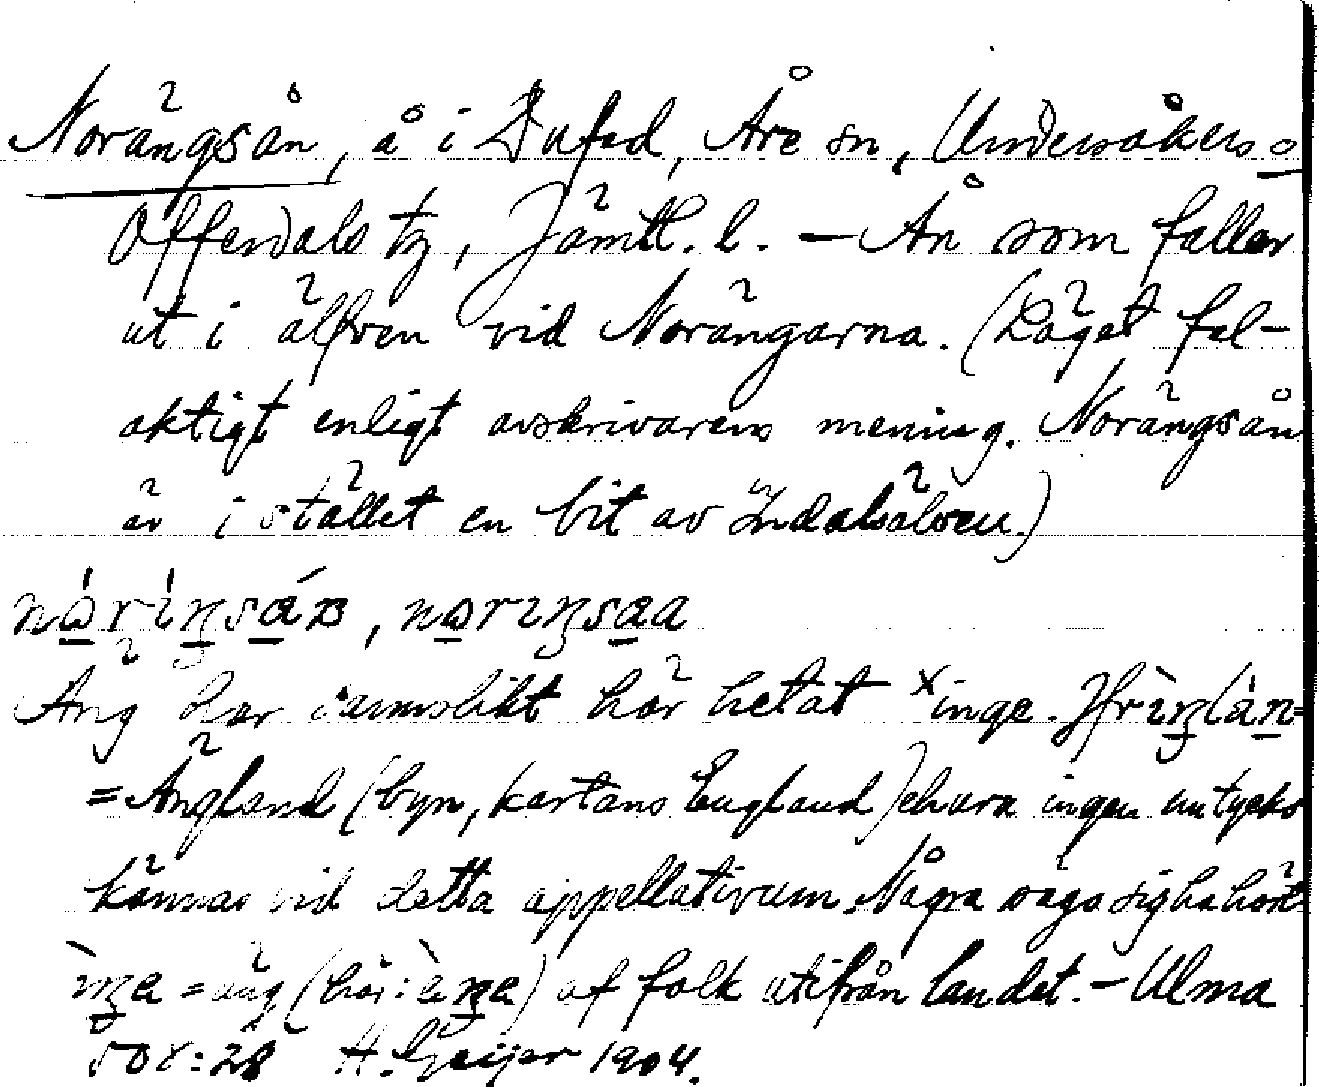 Norängsån, å i Dufed, Åre sn, Undersåkers o
Offerdals tg, Jämtl. l. – Ån som faller
ut i älfven vid Norängarna. (Läget fel-
aktigt enligt avskrivarens mening. Norängsån
är i stället en bit av Indalsälven.)
Äng har sannolikt här hetat ˣinge. Jfr
= Ängland (byn, kartans England) ehuru ingen tycks
kännas vid detta appellativum. Några säga sig ha hört
= äng (här: ) af folk utifrån landet. – Ulma
: 28 H. Geijer 1904.